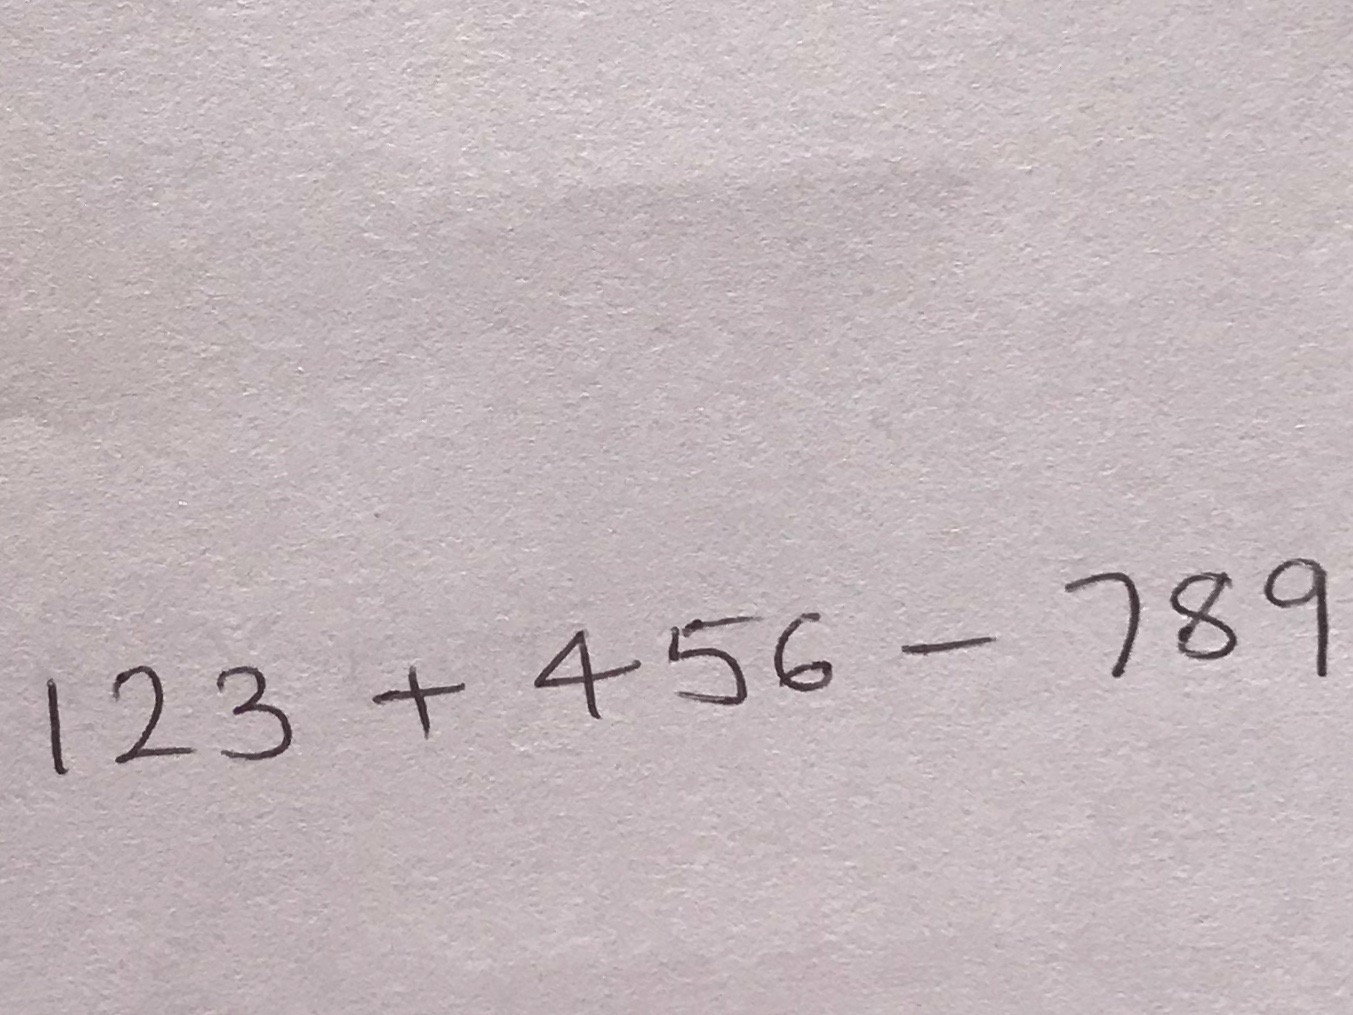 123 + 456 - 789